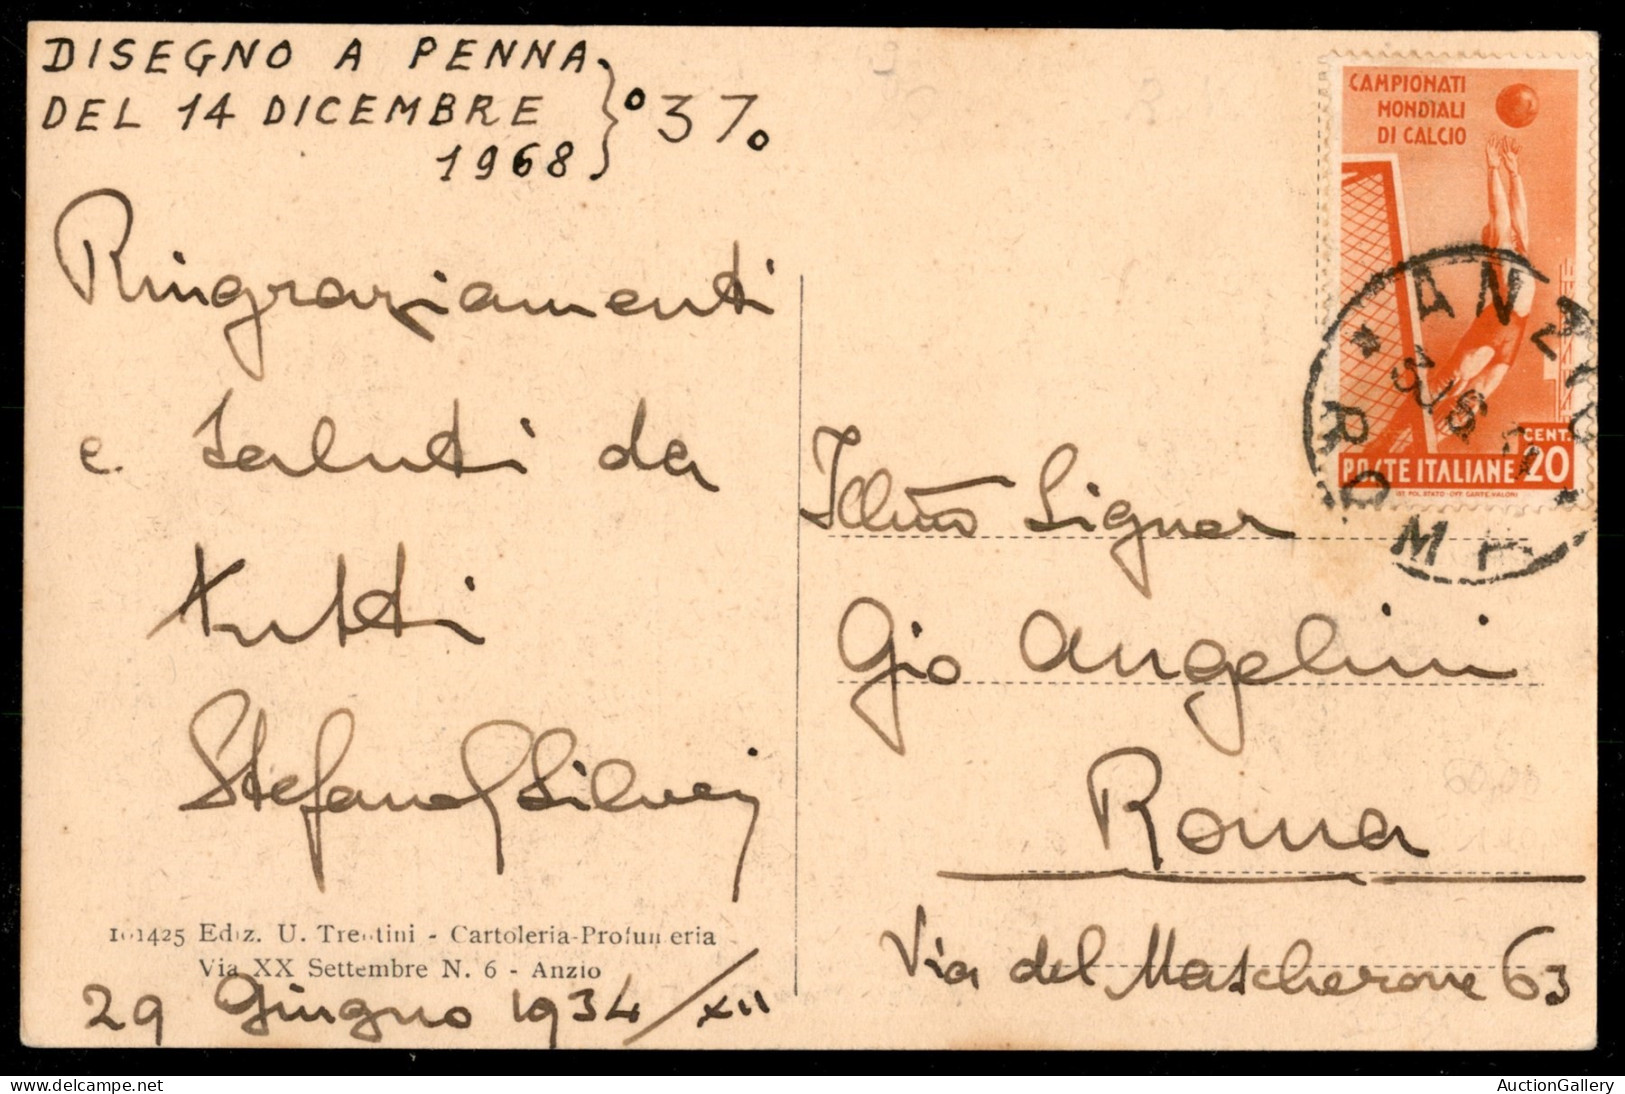 DISEGNO A PENNA
DEL 14 DICEMBRE
1968
37
Ringraziamenti
e saluti da
tutti
Stefano Silvey
Ediz. U. Trentini - Cartoleria-Profumeria
Via XX Settembre N. 6 - Anzio
29 Giugno 1934/XII
CAMPIONATI
MONDIALI
DI CALCIO
CENT.
POSTE ITALIANE 20
IST. POL. STATO - OFF. CARTE-VALORI
ANZIO
ROMA
Illmo Signor
Gio Angelini
Roma
Via del Mascherone 63
AuctionGallery